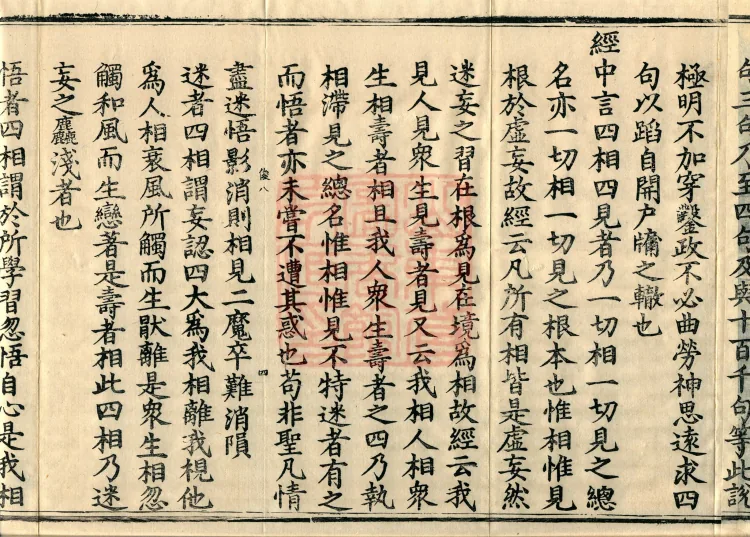 句三句乃至四句及與十百千句等此説
極明不加穿鑿政不必曲勞神思遠求四
句以蹈自開户牖之轍也
經中言四相四見者乃一切相一切見之總
名亦一切相一切見之根本也惟相惟見
根於虛妄故經云凡所有相皆是虛妄然
迷妄之習在根爲見在境爲相故經云我
見人見衆生見壽者見又云我相人相衆
生相壽者相且我人衆生壽者之四乃執
相滯見之總名惟相惟見不特迷者有之
而悟者亦未嘗不遭其惑也苟非聖凡情
盡迷悟影消則相見二魔卒難消隕
迷者四相謂妄認四大爲我相離我視他
爲人相衰風所觸而生猒離是衆生相忽
觸和風而生戀著是壽者相此四相乃迷
妄之麤淺者也
悟者四相謂於所學習忽悟自心是我相
八
四